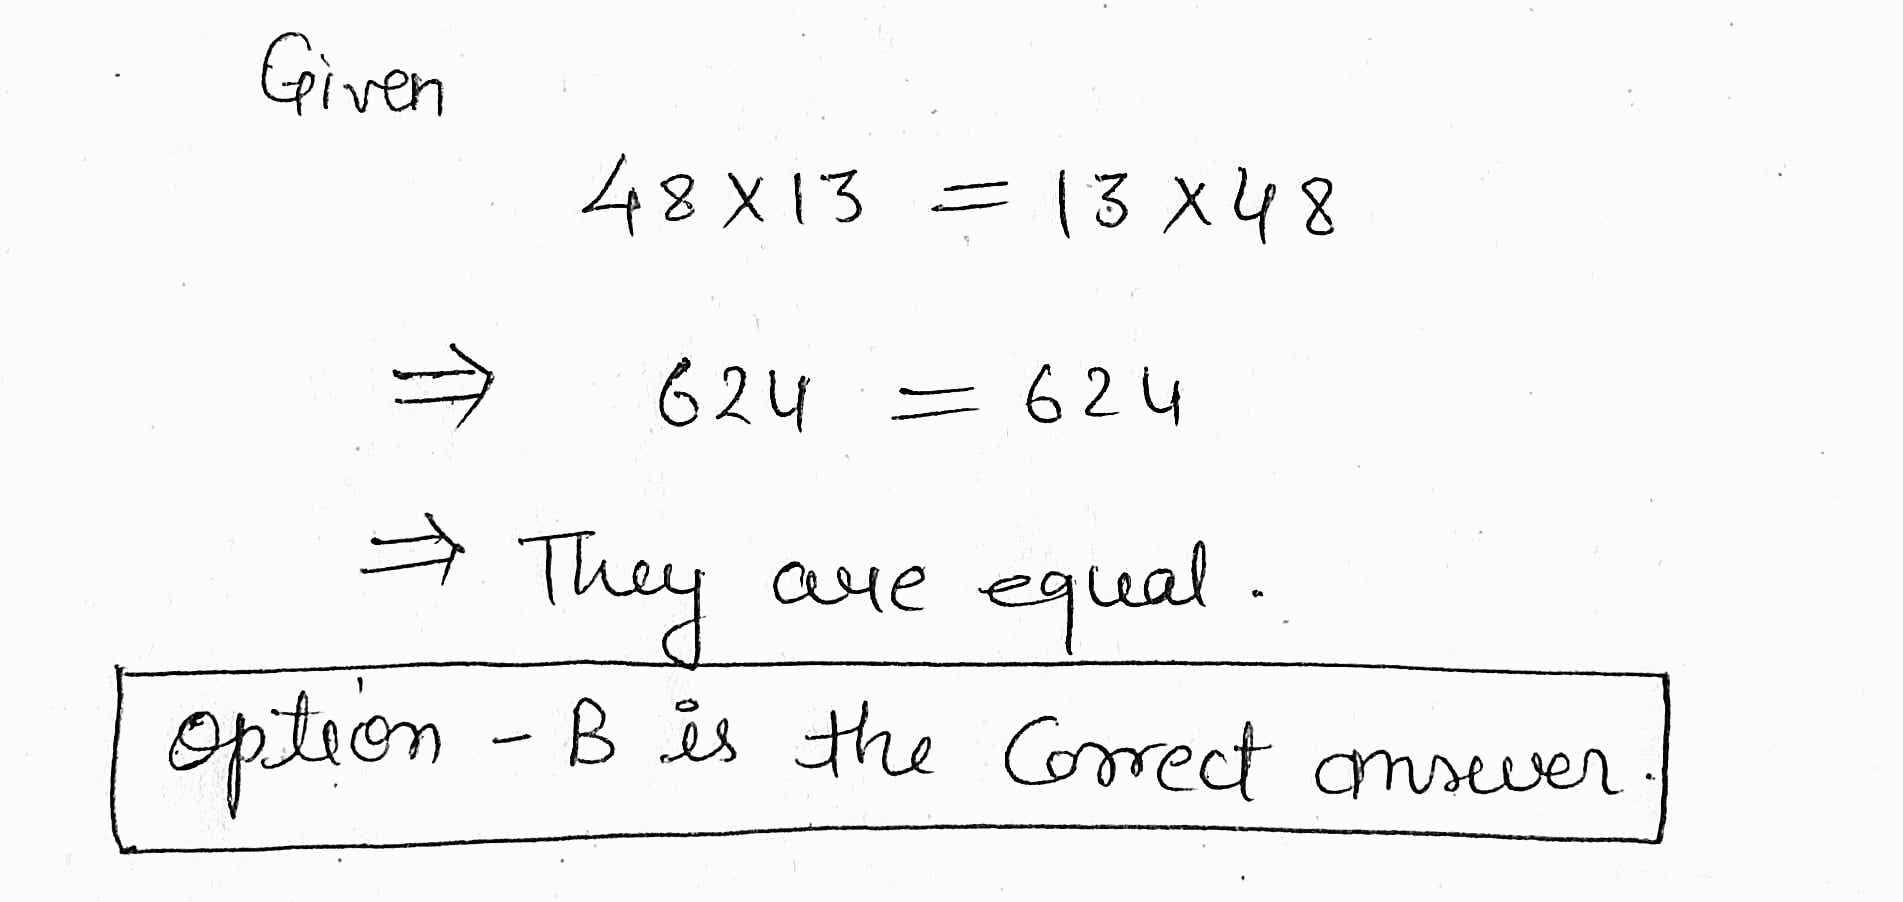 Given
48 × 13 = 13 × 48
⇒ 624 = 624
⇒ They are equal.
option - B is the Correct answer.